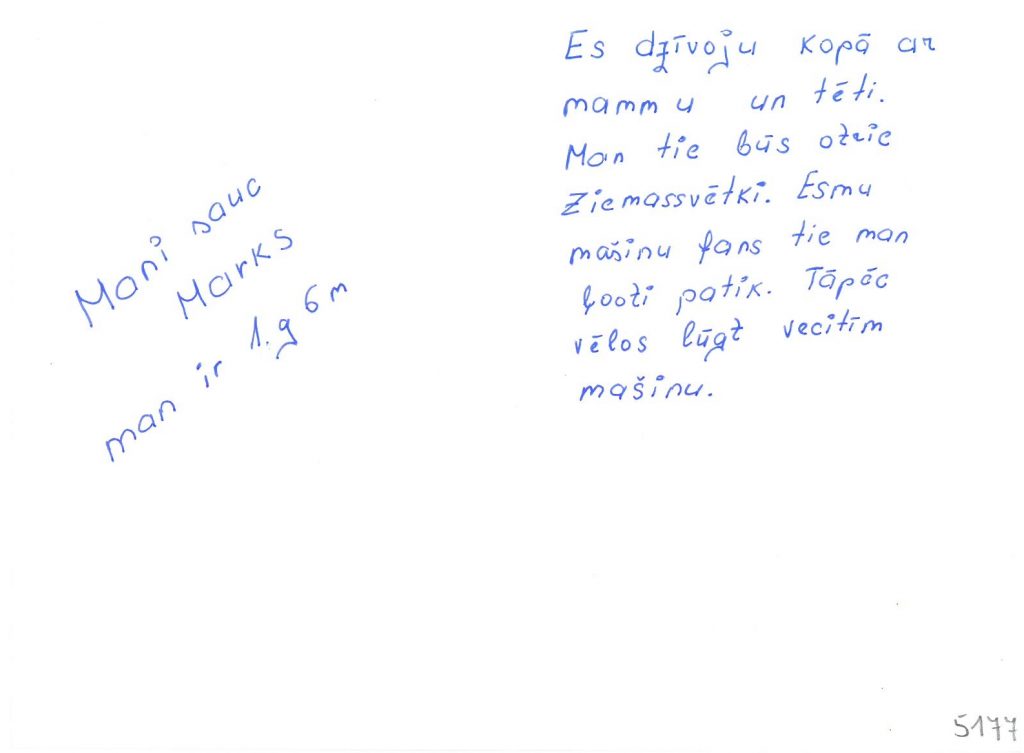 Mani sauc
Marks
man ir 1.g 6 m
Es dzīvoju kopā ar
mammu un tēti.
Man tie būs otrie
Ziemassvētki. Esmu
mašīnu fans tie man
ļooti patīk. Tāpēc
vēlos lūgt vecitīm
mašīnu.
5177